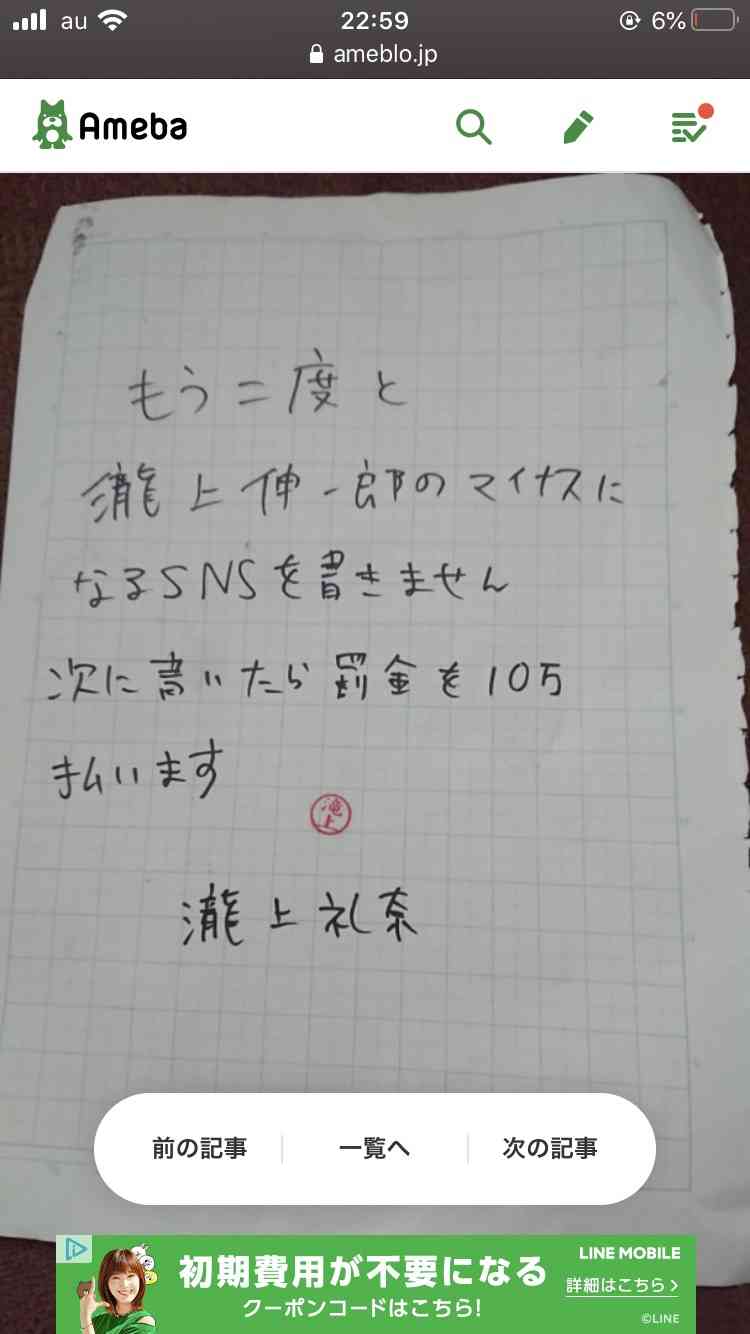 au
22:59
6%
ameblo.jp
Ameba
もう二度と
瀧上伸一郎のマイナスに
なるSNSを書きません
次に書いたら罰金を10万
払います
滝上
瀧上礼奈
前の記事
一覧へ
次の記事
初期費用が不要になる
クーポンコードはこちら!
LINE MOBILE
詳細はこちら
©LINE